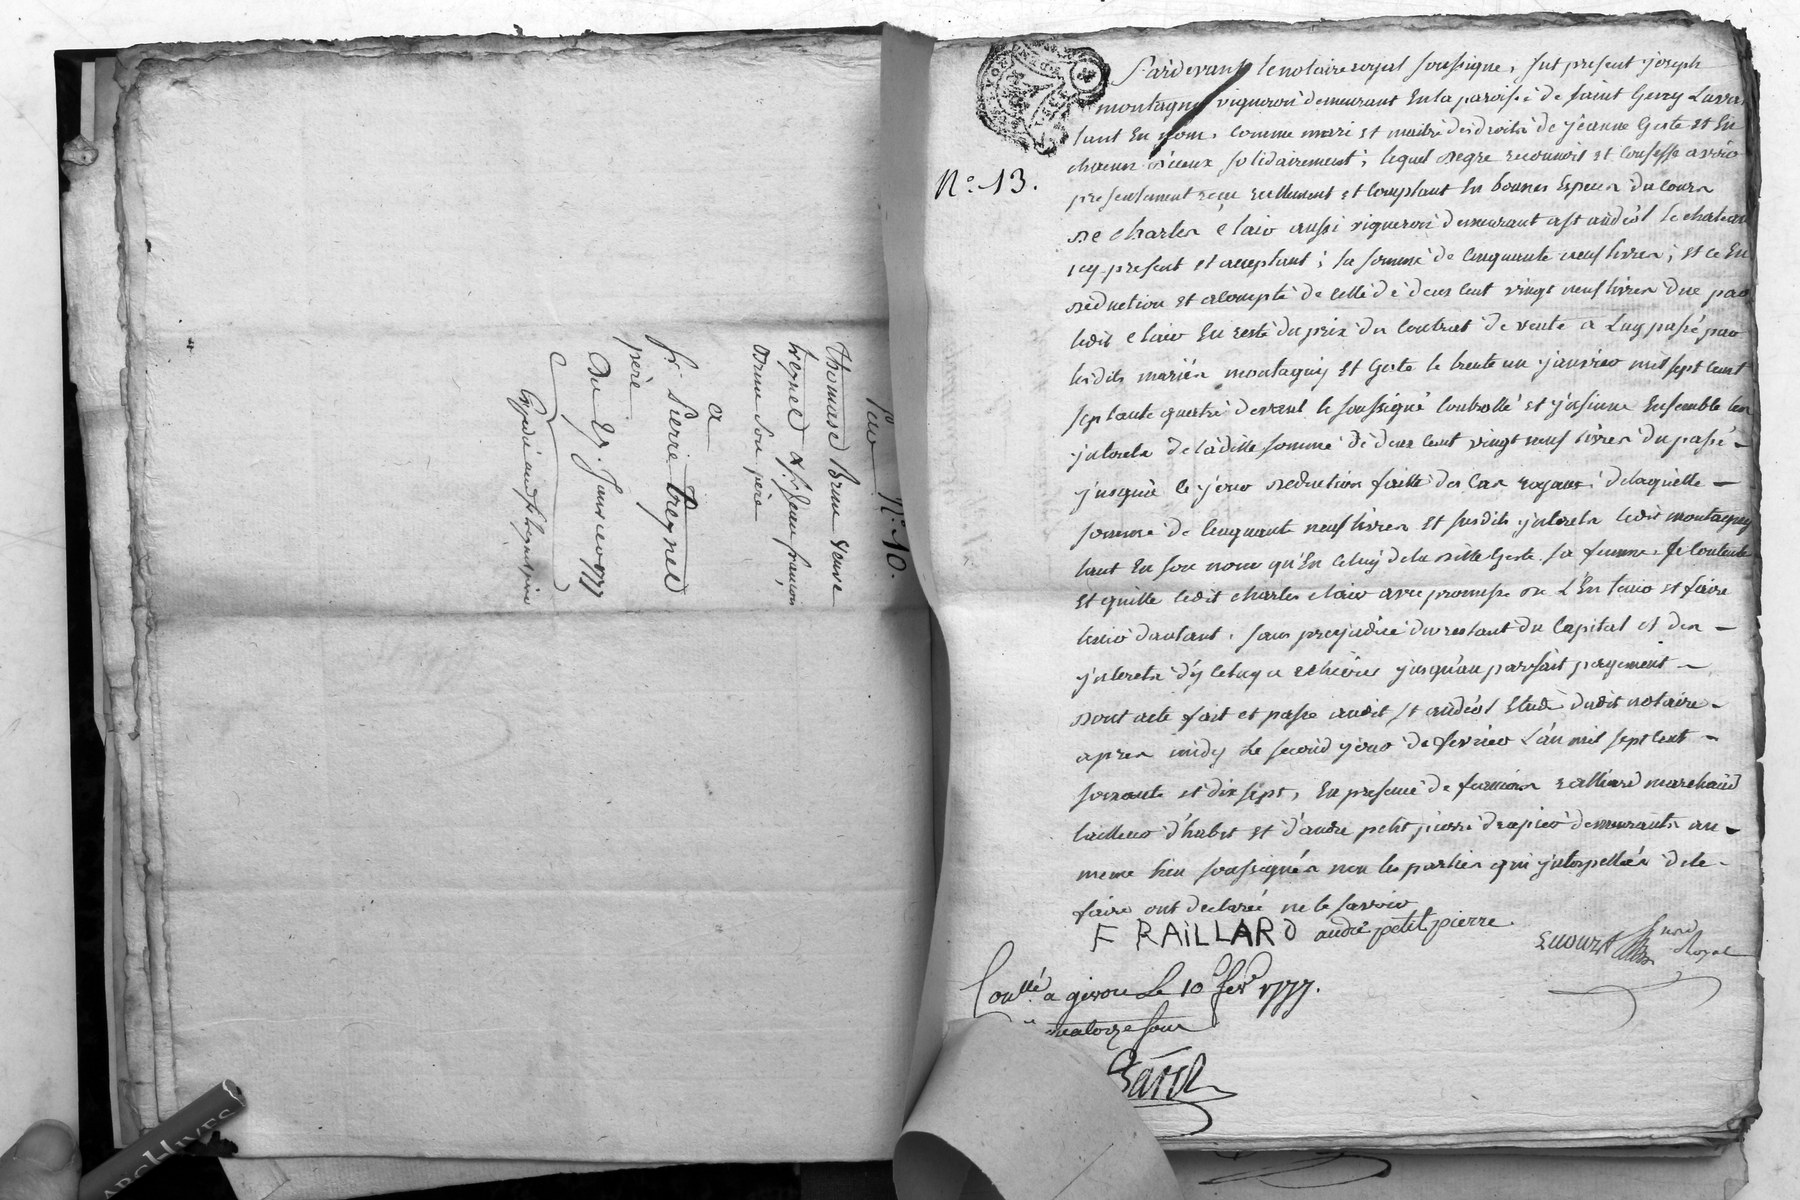 N.° 10.
Pour
Thomase Brun veuve
treynel & Sr. Jean françois
Brun son père
a
Sr. Pierre treynel
père
Du 2. Janvier 1777
Expedié audit treynel père
N.° 13.
Pardevant le notaire royal soussigné, fut present joseph
montagny vigneron demeurant En la paroisse de saint Genry Lavra
tant En nom, comme mari et maitre des droits de jéanne Geste et En
chacun d'eux solidairement; lequel degre reconnoit et confesse avoir
presentement recu reellement et comptant En bonnes Especes du cours
de charles claio aussi vigneron demeurant a st andéol le chateau
icy present et acceptant; la somme de Cinquante neuf livres; et ce En
déduction et acompte de celle de deux cent vingt neuf livres due par
ledit claio En reste du prix du contrat de vente a Luy passé par
lesdits mariés montagny et Geste le trente un janvier mil sept cent
septante quatre devant le soussigné controllé et jnsinué Ensemble les
jnterets de ladille somme de deux cent vingt neuf livres du passé
jusqua ce jour deduction faitte des cas royaux; delaquelle
somme de Cinquante neuf livres et susdits jnterets ledit montagny
tant En son nom qu'En celuy de la ditte Geste sa femme, se contente
Et quitte ledit charles claio avec promesse de L'En tenir et faire
tenir d'autant, sans prejudice du restant du Capital et des
jnterets d'y celuy a Echeoir jusqu'au parfait payement
dont acte fait et passé audit st andéol Etude dudit notaire
apres midy Le second jour de fevrier L'an mil sept cent
soixante et dix sept, En presence de francois raillard marchand
tailleur d'habit et d'andre petit pierre drapier demeurants au
meme lieu soussignés non les parties qui jnterpellées de le
faire ont declaré ne le savoir
F RAiLLARD andré petit pierre
Royal
Conllé a givors Le 10 fevr 1777.
quatorze sous